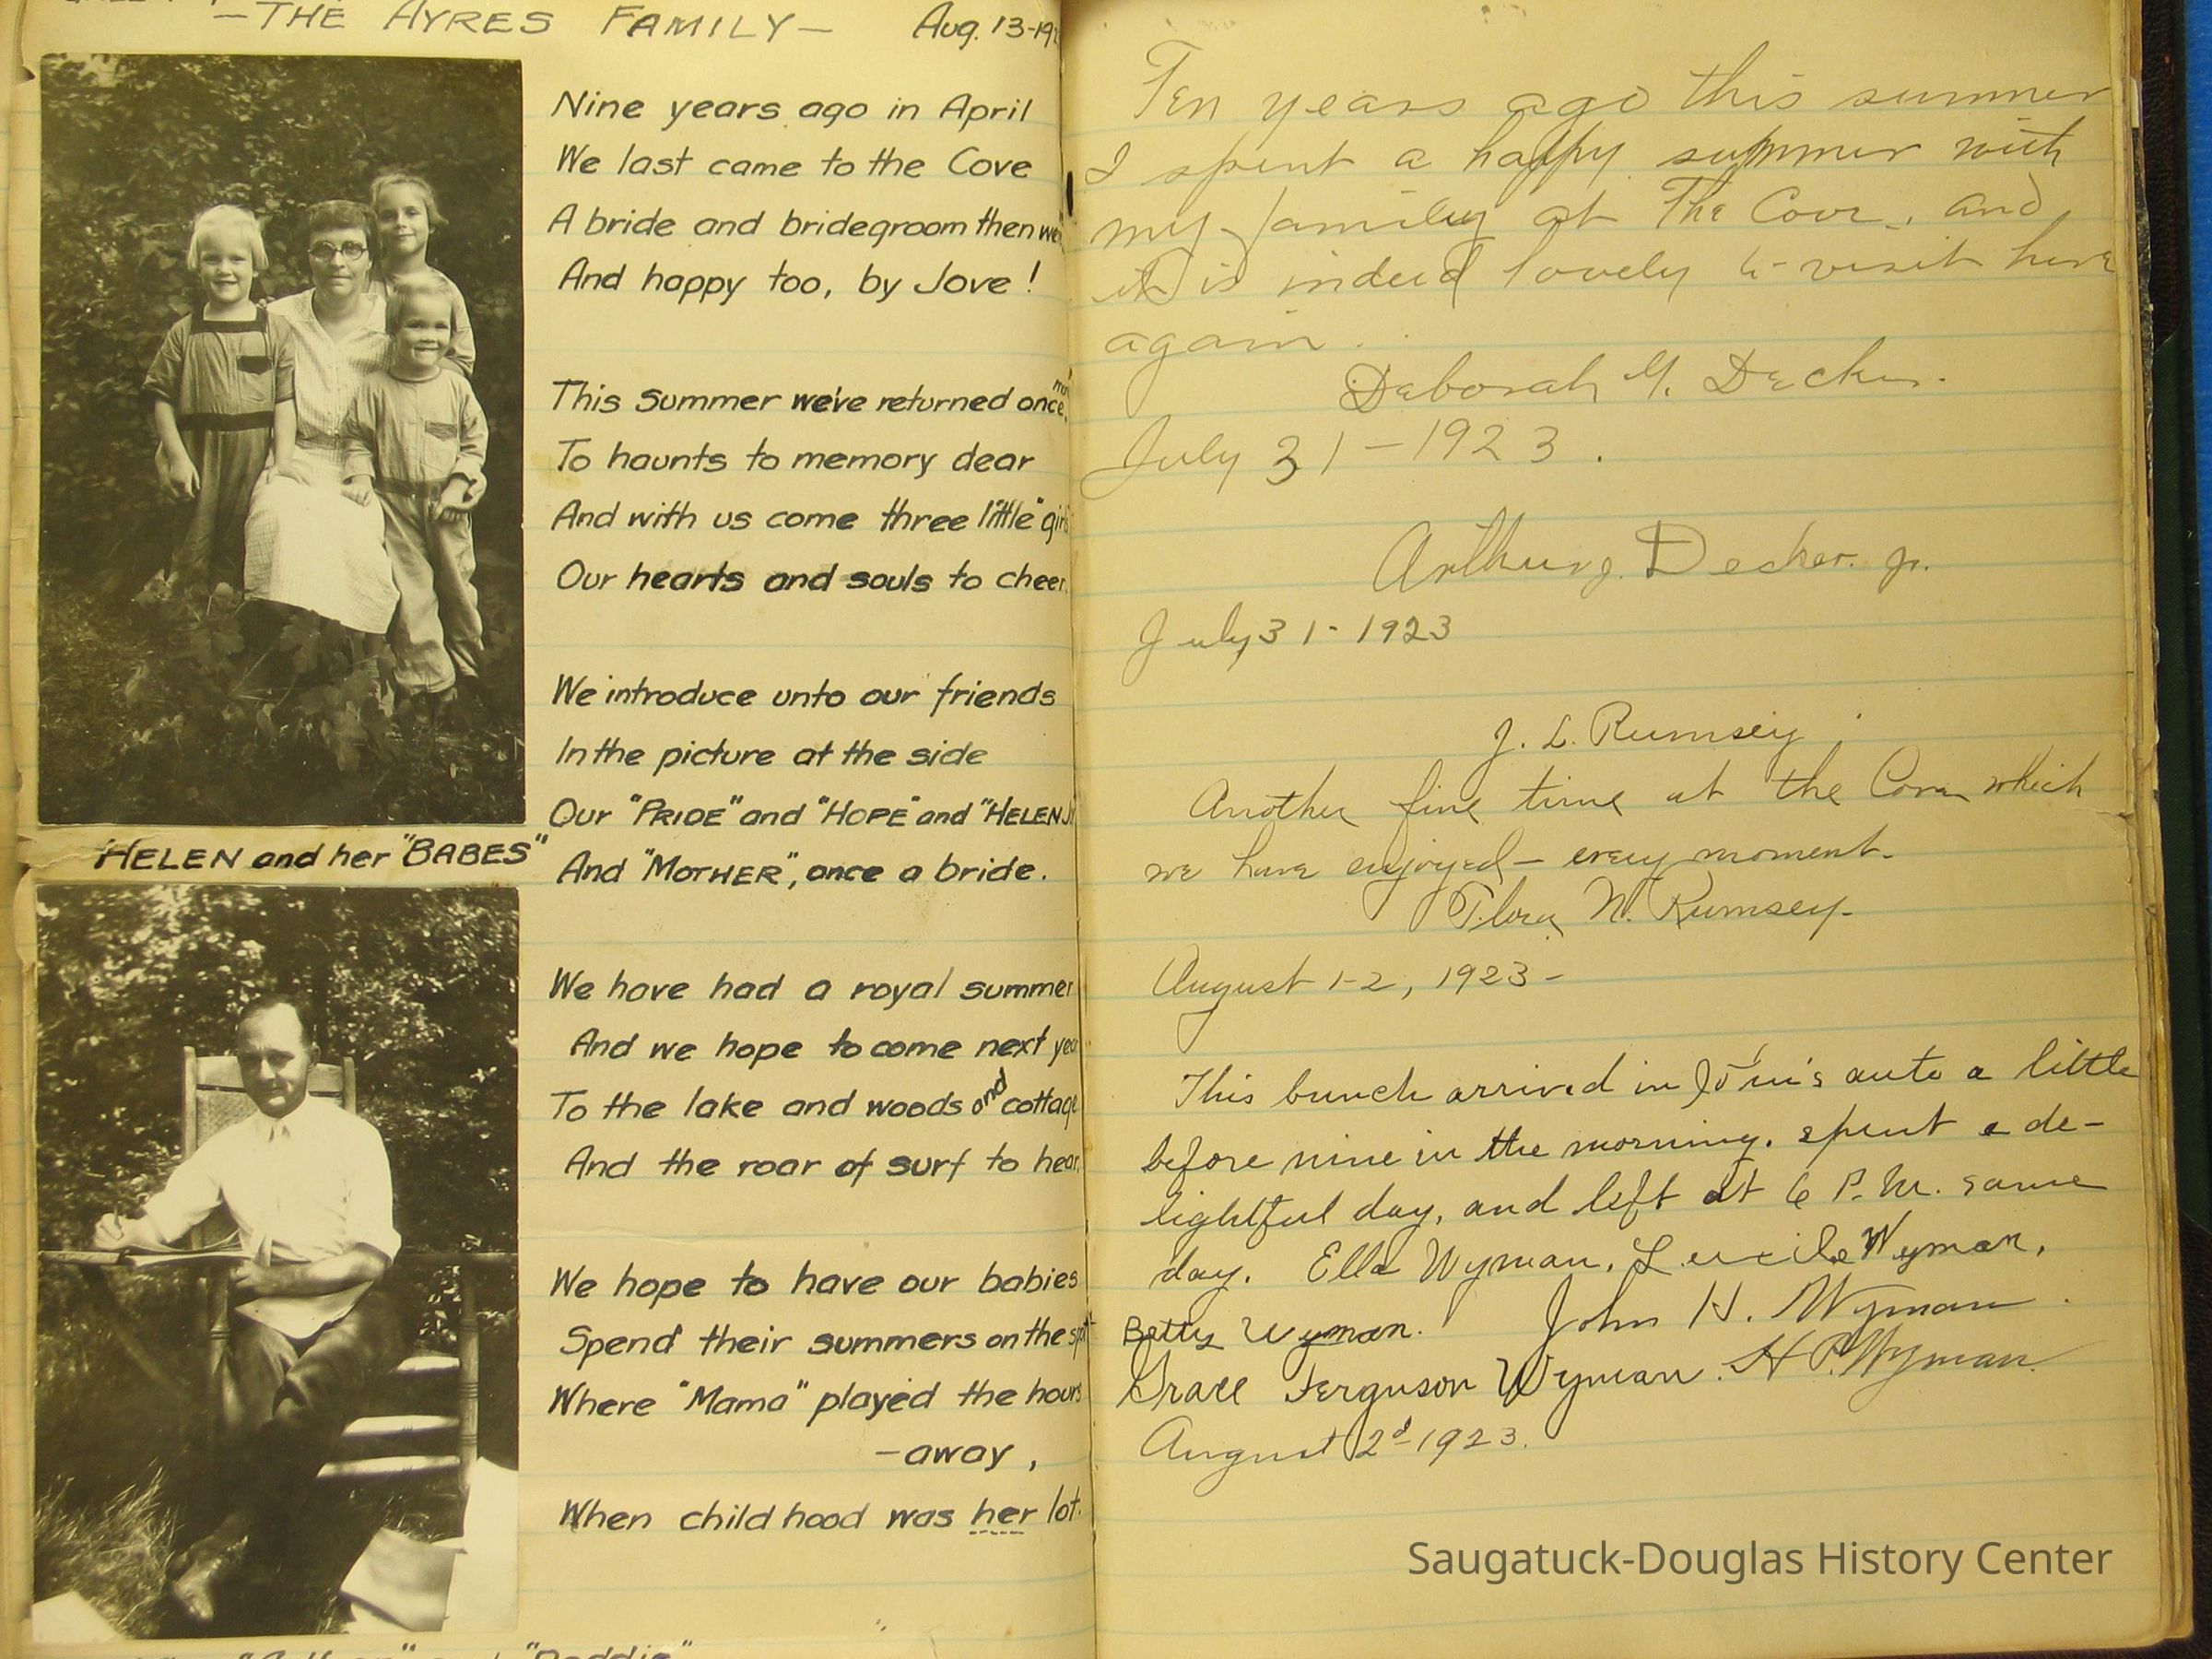 —THE AYRES FAMILY— Aug. 13-19
Nine years ago in April
We last came to the Cove
A bride and bridegroom then
And happy too, by Jove!
This Summer we've returned once
To haunts to memory dear
And with us come three "little" girls
Our hearts and souls to cheer.
We introduce unto our friends
In the picture at the side
Our "PRIDE" and "HOPE" and "HELEN
And "MOTHER", once a bride.
"HELEN and her "BABES"
We have had a royal summer
And we hope to come next year
To the lake and woods and cottage
And the roar of surf to hear.
We hope to have our babies
Spend their summers on the spot
Where "Mama" played the hours
—away,
When childhood was her lot.
"Daddie"
Ten years ago this summer
I spent a happy summer with
my family at The Cove, and
it is indeed lovely to visit here
again.
Deborah Y. Decker.
July 31-1923.
Arthur J. Decker. Jr.
July 31-1923
J. L. Rumsey
Another fine time at the Cove which
we have enjoyed— every moment.
Flora N. Rumsey.
August 1-2, 1923-
This bunch arrived in auto a little
before nine in the morning. spent a de-
lightful day, and left at 6 P.M. same
day. Ella Wyman, Lucile Wyman,
Betty Wyman. John H. Wyman.
Grace Ferguson Wyman. H P. Wyman.
August 2d-1923.
Saugatuck-Douglas History Center